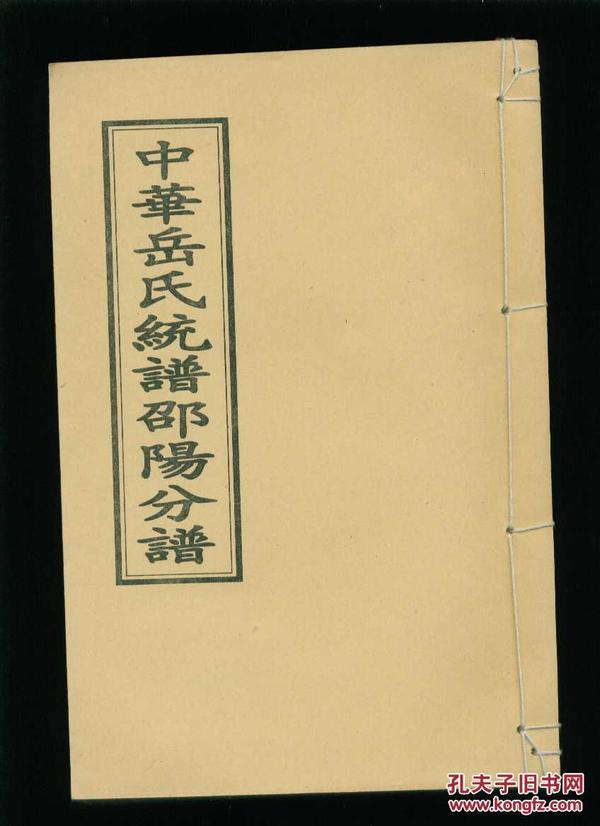 中華岳氏統譜邵陽分譜
孔夫子旧书网
www.kongfz.com